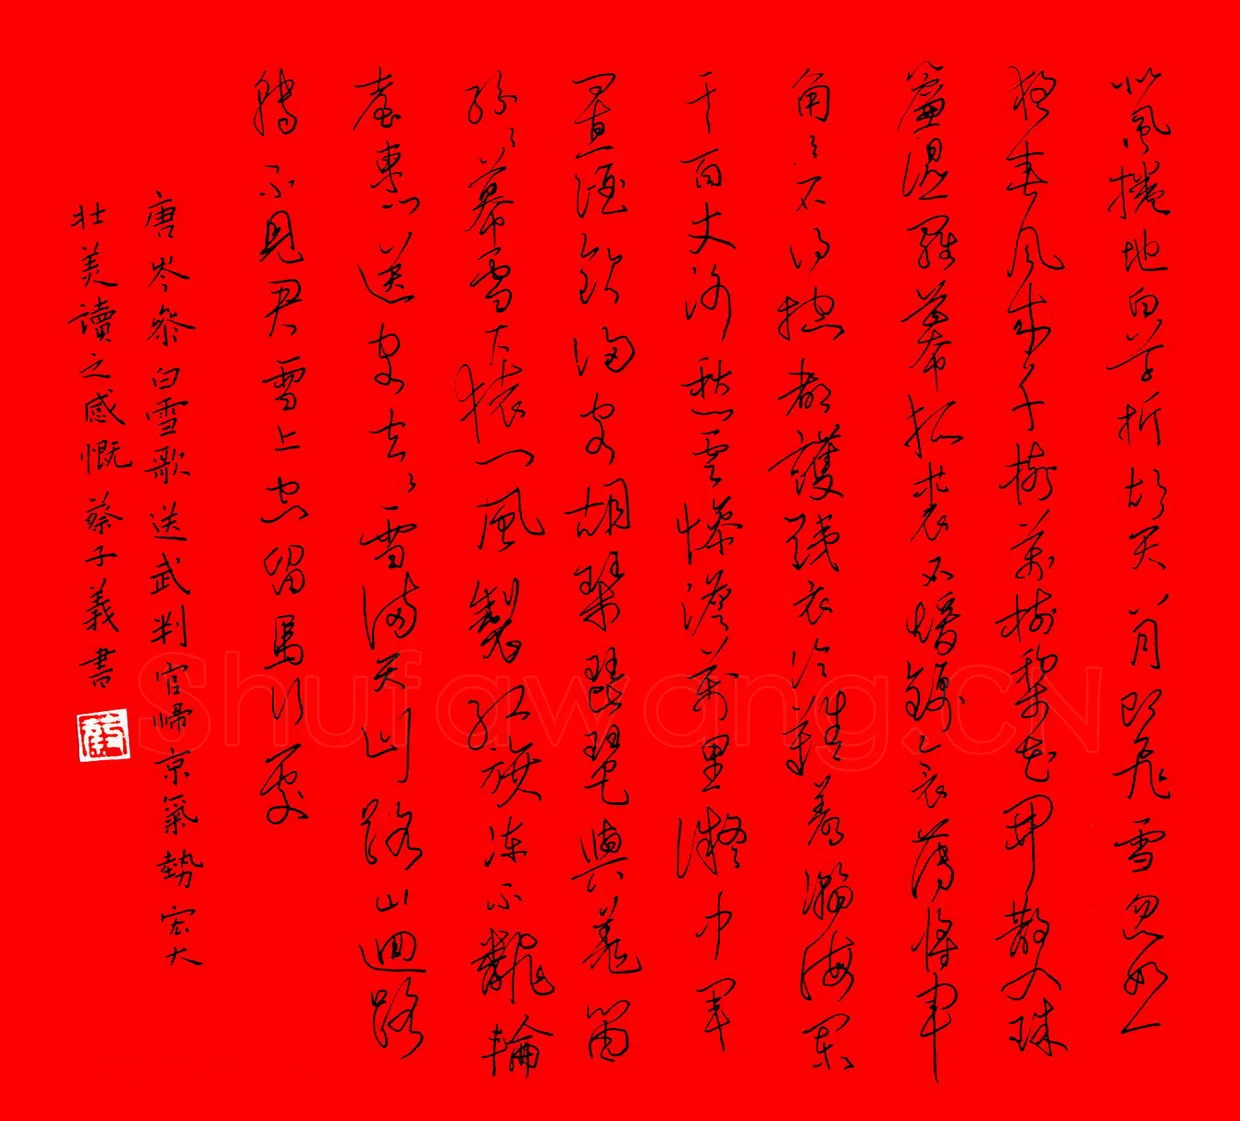 北風捲地白草折胡天八月即飛雪忽如一
夜春風來千樹萬樹梨花開散入珠
簾濕羅幕狐裘不煖錦衾薄將軍
角弓不得控都護鐵衣冷難著瀚海闌
干百丈冰愁雲慘澹萬里凝中軍
置酒飲歸客胡琴琵琶與羌笛
紛〻暮雪下轅門風製紅旗凍不飜輪
臺東門送客去〻雪滿天山路山迴路
轉不見君雪上空留馬行處
唐岑參白雪歌送武判官歸京氣勢宏大
壯美讀之感慨蔡子義書
Shufawang.CN